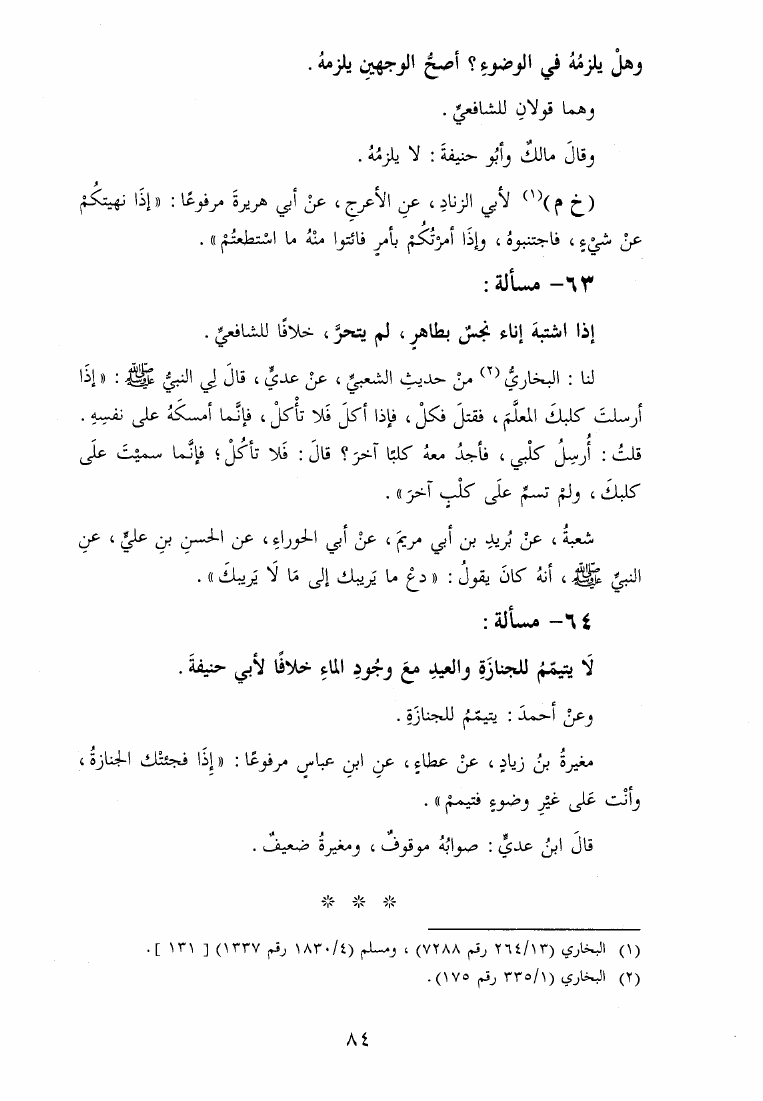 وهلْ يلزمُهُ في الوضوءِ؟ أصحُّ الوجهينِ يلزمهُ.
وهما قولانِ للشافعيِّ.
وقالَ مالكٌ وأبُو حنيفةَ: لا يلزمُهُ.
(خ م)(١) لأبي الزنادِ، عنِ الأعرجِ، عنْ أبي هريرةَ مرفوعًا: «إذَا نهيتكُمْ
عنْ شيْءٍ، فاجتنبوهُ، وإذَا أمرْتُكُمْ بأمرٍ فائتوا منْهُ ما اسْتطعتُمْ».
٦٣- مسألة:
إذا اشتبهَ إناء نجسٌ بطاهرٍ، لم يتحرَّ، خلافًا للشافعيِّ.
لنا: البخاريُّ(٢) منْ حديثِ الشعبيِّ، عنْ عديٍّ، قالَ لِي النبيُّ ﷺ: «إذَا
أرسلتَ كلبكَ المعلَّمَ، فقتلَ فكلْ، فإذا أكلَ فَلا تأْكلْ، فإنَّما أمسكَهُ على نفسِهِ.
قلتُ: أُرسِلُ كلْبي، فأجدُ معهُ كلبًا آخرَ؟ قالَ: فَلا تأكُلْ؛ فإنَّما سميْتَ علَى
كلبكَ، ولمْ تسمِّ علَى كلْبٍ آخرَ».
شعبةُ، عنْ بُريدِ بن أبي مريمَ، عنْ أبي الحوراءِ، عن الحسنِ بنِ عليٍّ، عنِ
النبيِّ ﷺ، أنهُ كانَ يقولُ: «دعْ ما يَريبك إلى مَا لَا يَريبكَ».
٦٤- مسألة:
لَا يتيمّمُ للجنازَةِ والعيدِ معَ وجُودِ الماءِ خلافًا لأبي حنيفةَ.
وعنْ أحمدَ: يتيمّمُ للجنازَةِ.
مغيرةُ بنُ زيادٍ، عنْ عطاءٍ، عنِ ابنِ عباسٍ مرفوعًا: «إِذَا فجئتْك الجنازةُ،
وأنْت عَلى غيْرِ وضوءٍ فتيممْ».
قالَ ابنُ عديٍّ: صوابُهُ موقوفٌ، ومغيرةُ ضعيفٌ.
* * *
(١) البخاري (١٣/٢٦٤ رقم ٧٢٨٨)، ومسلم (٤/١٨٣٠ رقم ١٣٣٧) [ ١٣١ ].
(٢) البخاري (١/٣٣٥ رقم ١٧٥).
٨٤